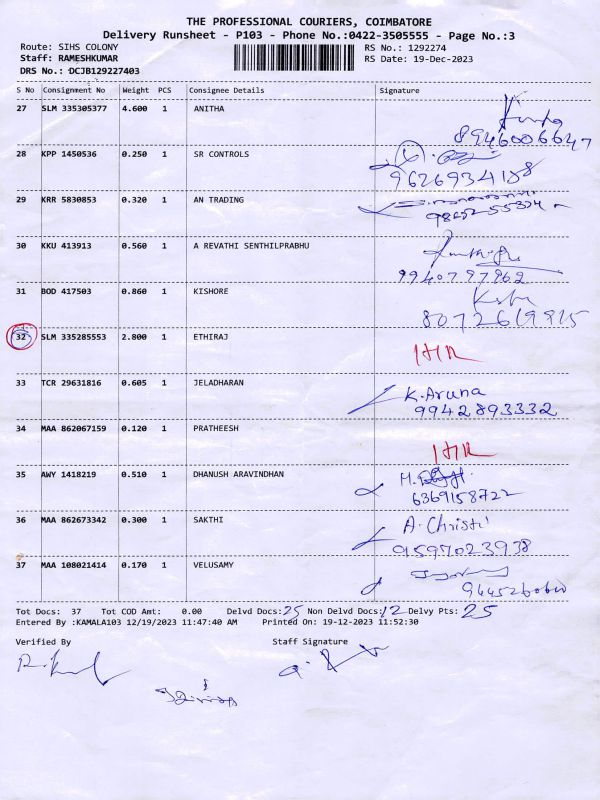 THE PROFESSIONAL COURIERS, COIMBATORE
Delivery Runsheet - P103 - Phone No.:0422-3505555 - Page No.:3
Route: SIHS COLONY RS No.: 1292274
Staff: RAMESHKUMAR RS Date: 19-Dec-2023
DRS No.: DCJB129227403
S No Consignment No Weight PCS Consignee Details Signature
27 SLM 335305377 4.600 1 ANITHA
8946006647
28 KPP 1450536 0.250 1 SR CONTROLS
9626934188
29 KRR 5830853 0.320 1 AN TRADING
30 KKU 413913 0.560 1 A REVATHI SENTHILPRABHU
9940797962
31 BOD 417503 0.860 1 KISHORE
8072619815
32 SLM 335285553 2.800 1 ETHIRAJ
33 TCR 29631816 0.605 1 JELADHARAN K.Aruna
9942893332
34 MAA 862067159 0.120 1 PRATHEESH
35 AWY 1418219 0.510 1 DHANUSH ARAVINDHAN
6369158722
36 MAA 862673342 0.300 1 SAKTHI A. Christi
9597023938
37 MAA 108021414 0.170 1 VELUSAMY
Tot Docs: 37 Tot COD Amt: 0.00 Delvd Docs:25 Non Delvd Docs:12 Delvy Pts: 25
Entered By :KAMALA103 12/19/2023 11:47:40 AM Printed On: 19-12-2023 11:52:30
Verified By Staff Signature